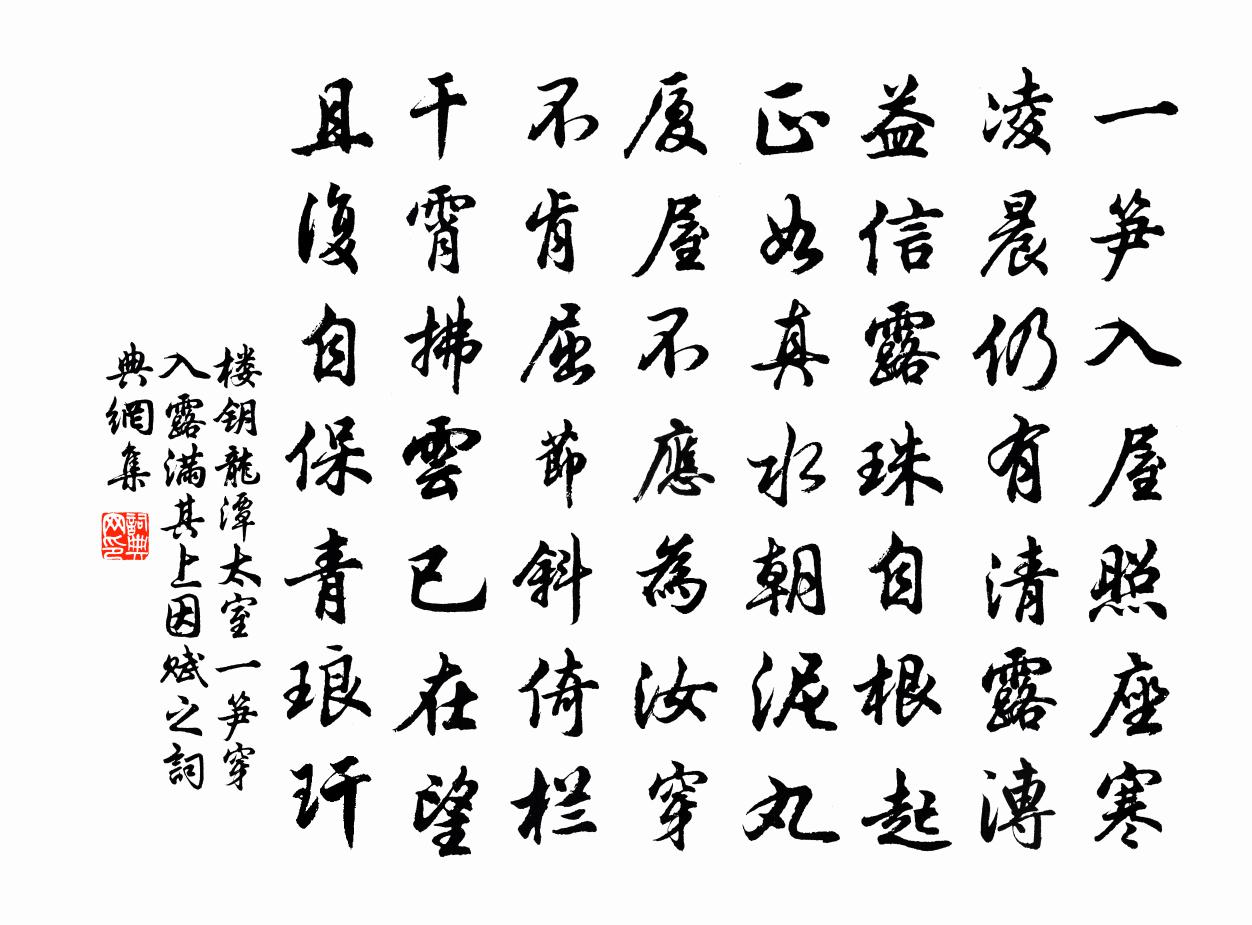 一笋入屋照座寒
凌晨仍有清露漙
益信露珠自根起
正如真水朝泥丸
厦屋不應為汝穿
不肯屈節斜倚栏
干霄拂雲已在望
且復自保青琅玕
楼钥龍潭太室一笋穿
入露满其上因赋之詞
典網集
詞典
网印